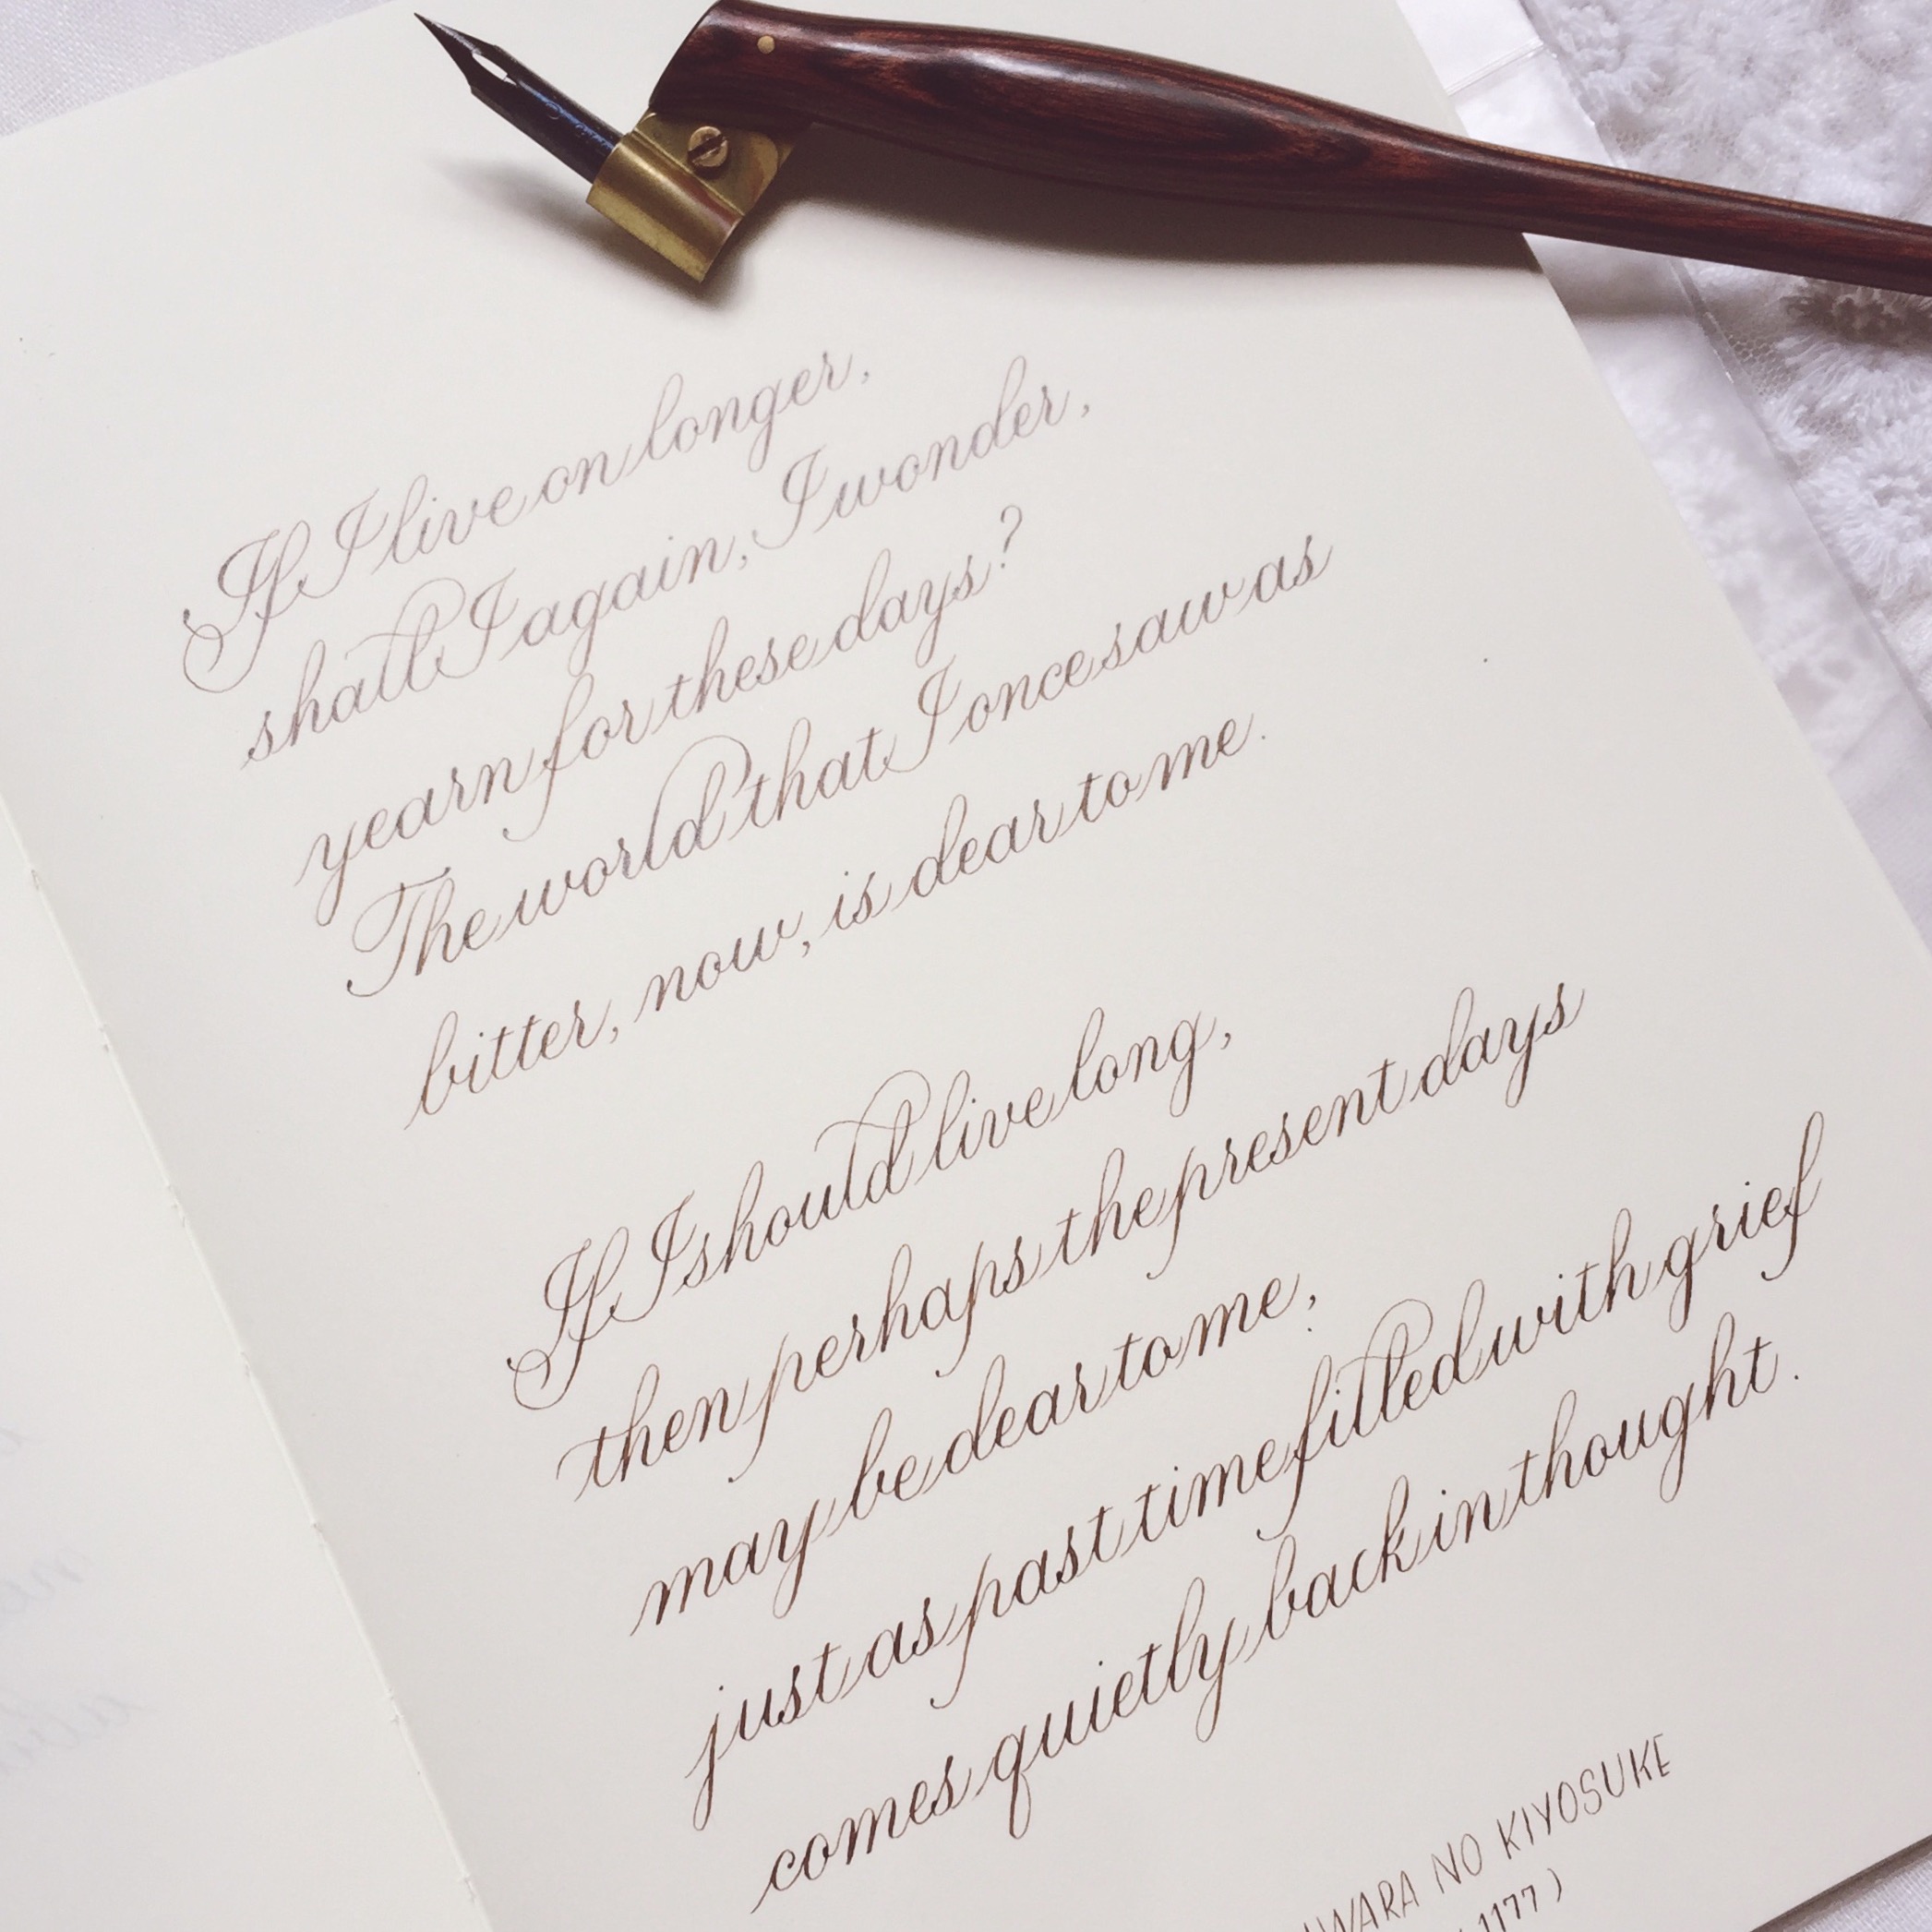 If I live on longer,
shall I again, I wonder,
yearn for these days?
The world that I once saw as
bitter, now, is dear to me.
If I should live long,
then perhaps the present days
may be dear to me;
just as past time filled with grief
comes quietly back in thought.
NO KIYOSUKE
1177)